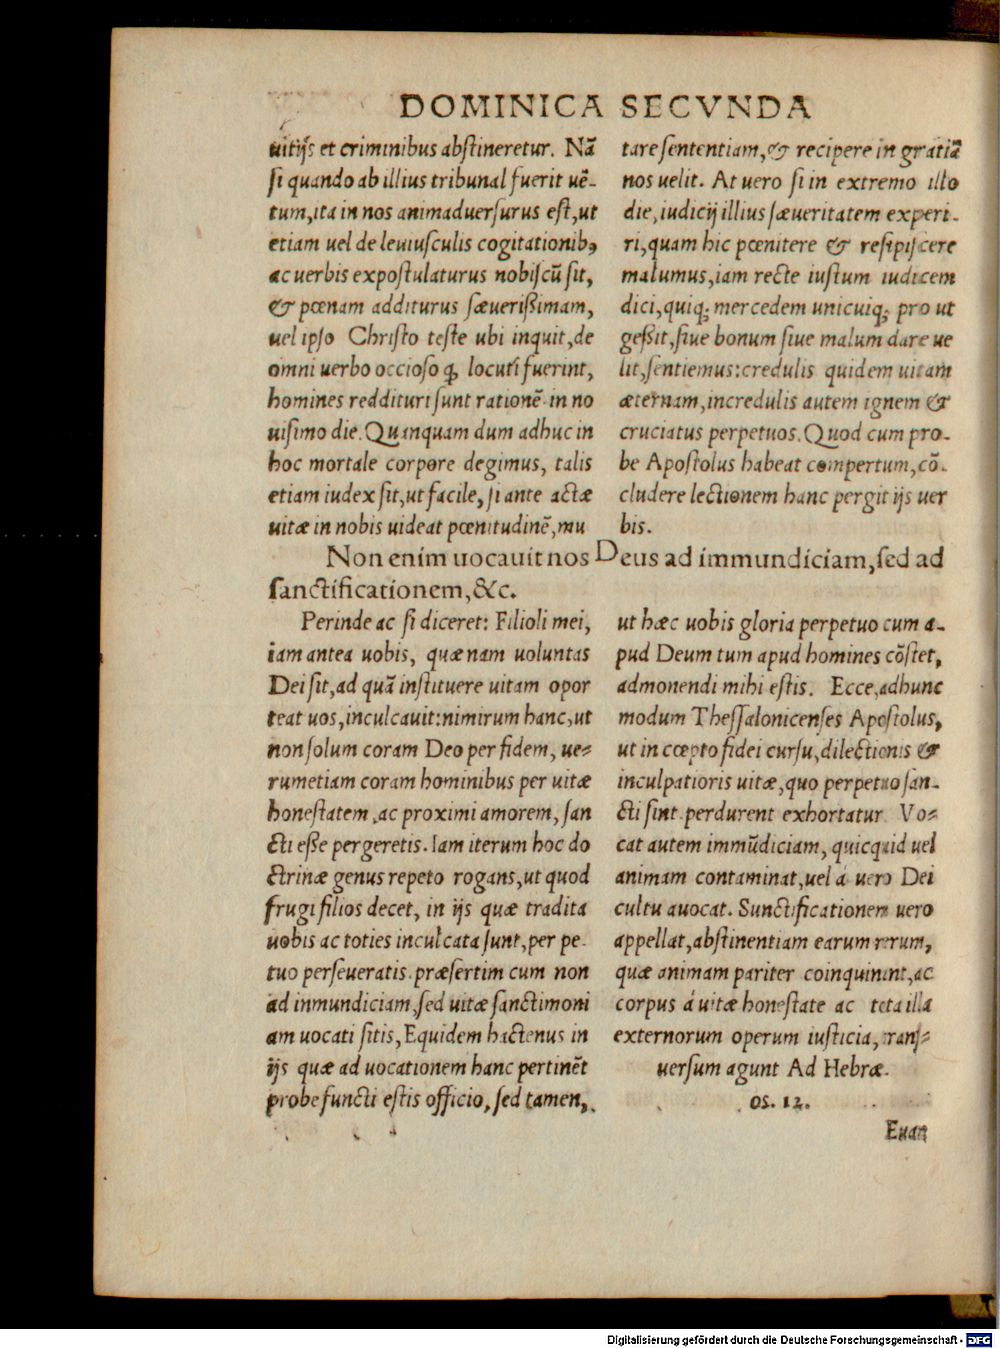 DOMINICA SECVNDA
uitijs et criminibus abstineretur. Nā
si quando ab illius tribunal fuerit uē-
tum, ita in nos animaduersurus est, ut
etiam uel de leuiusculis cogitationibꝰ
ac uerbis expostulaturus nobiscū sit,
& pœnam additurus sæuerißimam,
uel ipso Christo teste ubi inquit, de
omni uerbo occioso ꝗ locuti fuerint,
homines reddituri sunt rationē in no
uisimo die. Quanquam dum adhuc in
hoc mortale corpore degimus, talis
etiam iudex sit, ut facile, si ante actæ
uitæ in nobis uideat pœnitudinē, mu
tare sententiam, & recipere in gratiā
nos uelit. At uero si in extremo illo
die, iudicij illius sæueritatem experi-
ri, quam hic pœnitere & resipiscere
malumus, iam recte iustum iudicem
dici, quiq; mercedem unicuiq; pro ut
geßit, siue bonum siue malum dare ue
lit, sentiemus: credulis quidem uitam
æternam, incredulis autem ignem &
cruciatus perpetuos. Quod cum pro-
be Apostolus habeat compertum, cō-
cludere lectionem hanc pergit ijs uer
bis.
Non enim uocauit nos Deus ad immundiciam, sed ad
sanctificationem, &c.
Perinde ac si diceret: Filioli mei,
iam antea uobis, quænam uoluntas
Dei sit, ad quā instituere uitam opor
teat uos, inculcauit: nimirum hanc, ut
non solum coram Deo per fidem, ue-
rumetiam coram hominibus per uitæ
honestatem, ac proximi amorem, san
cti eße pergeretis. Iam iterum hoc do
ctrinæ genus repeto rogans, ut quod
frugi filios decet, in ijs quæ tradita
uobis ac toties inculcata sunt, per pe-
tuo perseueratis. præsertim cum non
ad inmundiciam, sed uitæ sanctimoni
am uocati sitis, Equidem hactenus in
ijs quæ ad uocationem hanc pertinēt
probe functi estis officio, sed tamen,
ut hæc uobis gloria perpetuo cum a-
pud Deum tum apud homines cōstet,
admonendi mihi estis. Ecce, adhunc
modum Thessalonicenses Apostolus,
ut in cœpto fidei cursu, dilectionis &
inculpatioris uitæ, quo perpetuo san-
cti sint perdurent exhortatur Vo-
cat autem immūdiciam, quicquid uel
animam contaminat, uel á uero Dei
cultu auocat. Sanctificationem uero
appellat, abstinentiam earum rerum,
quæ animam pariter coinquinant, ac
corpus á uitæ honestate ac tota illa
externorum operum iusticia, transˢ-
uersum agunt Ad Hebræ-
os. 12.
Euan
Digitalisierung gefördert durch die Deutsche Forschungsgemeinschaft - DFG